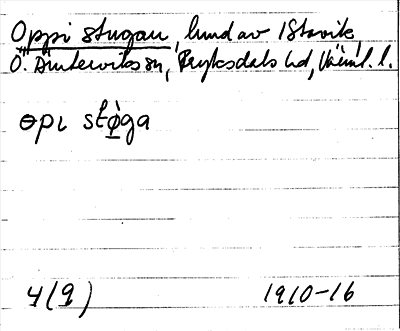 Oppi stugan, lund av 1 Stavik,
Ö. Ämterviks sn, Fryksdals hd, Värml. l.
ɵpɩ stø̀ga
4(9) 1910-16